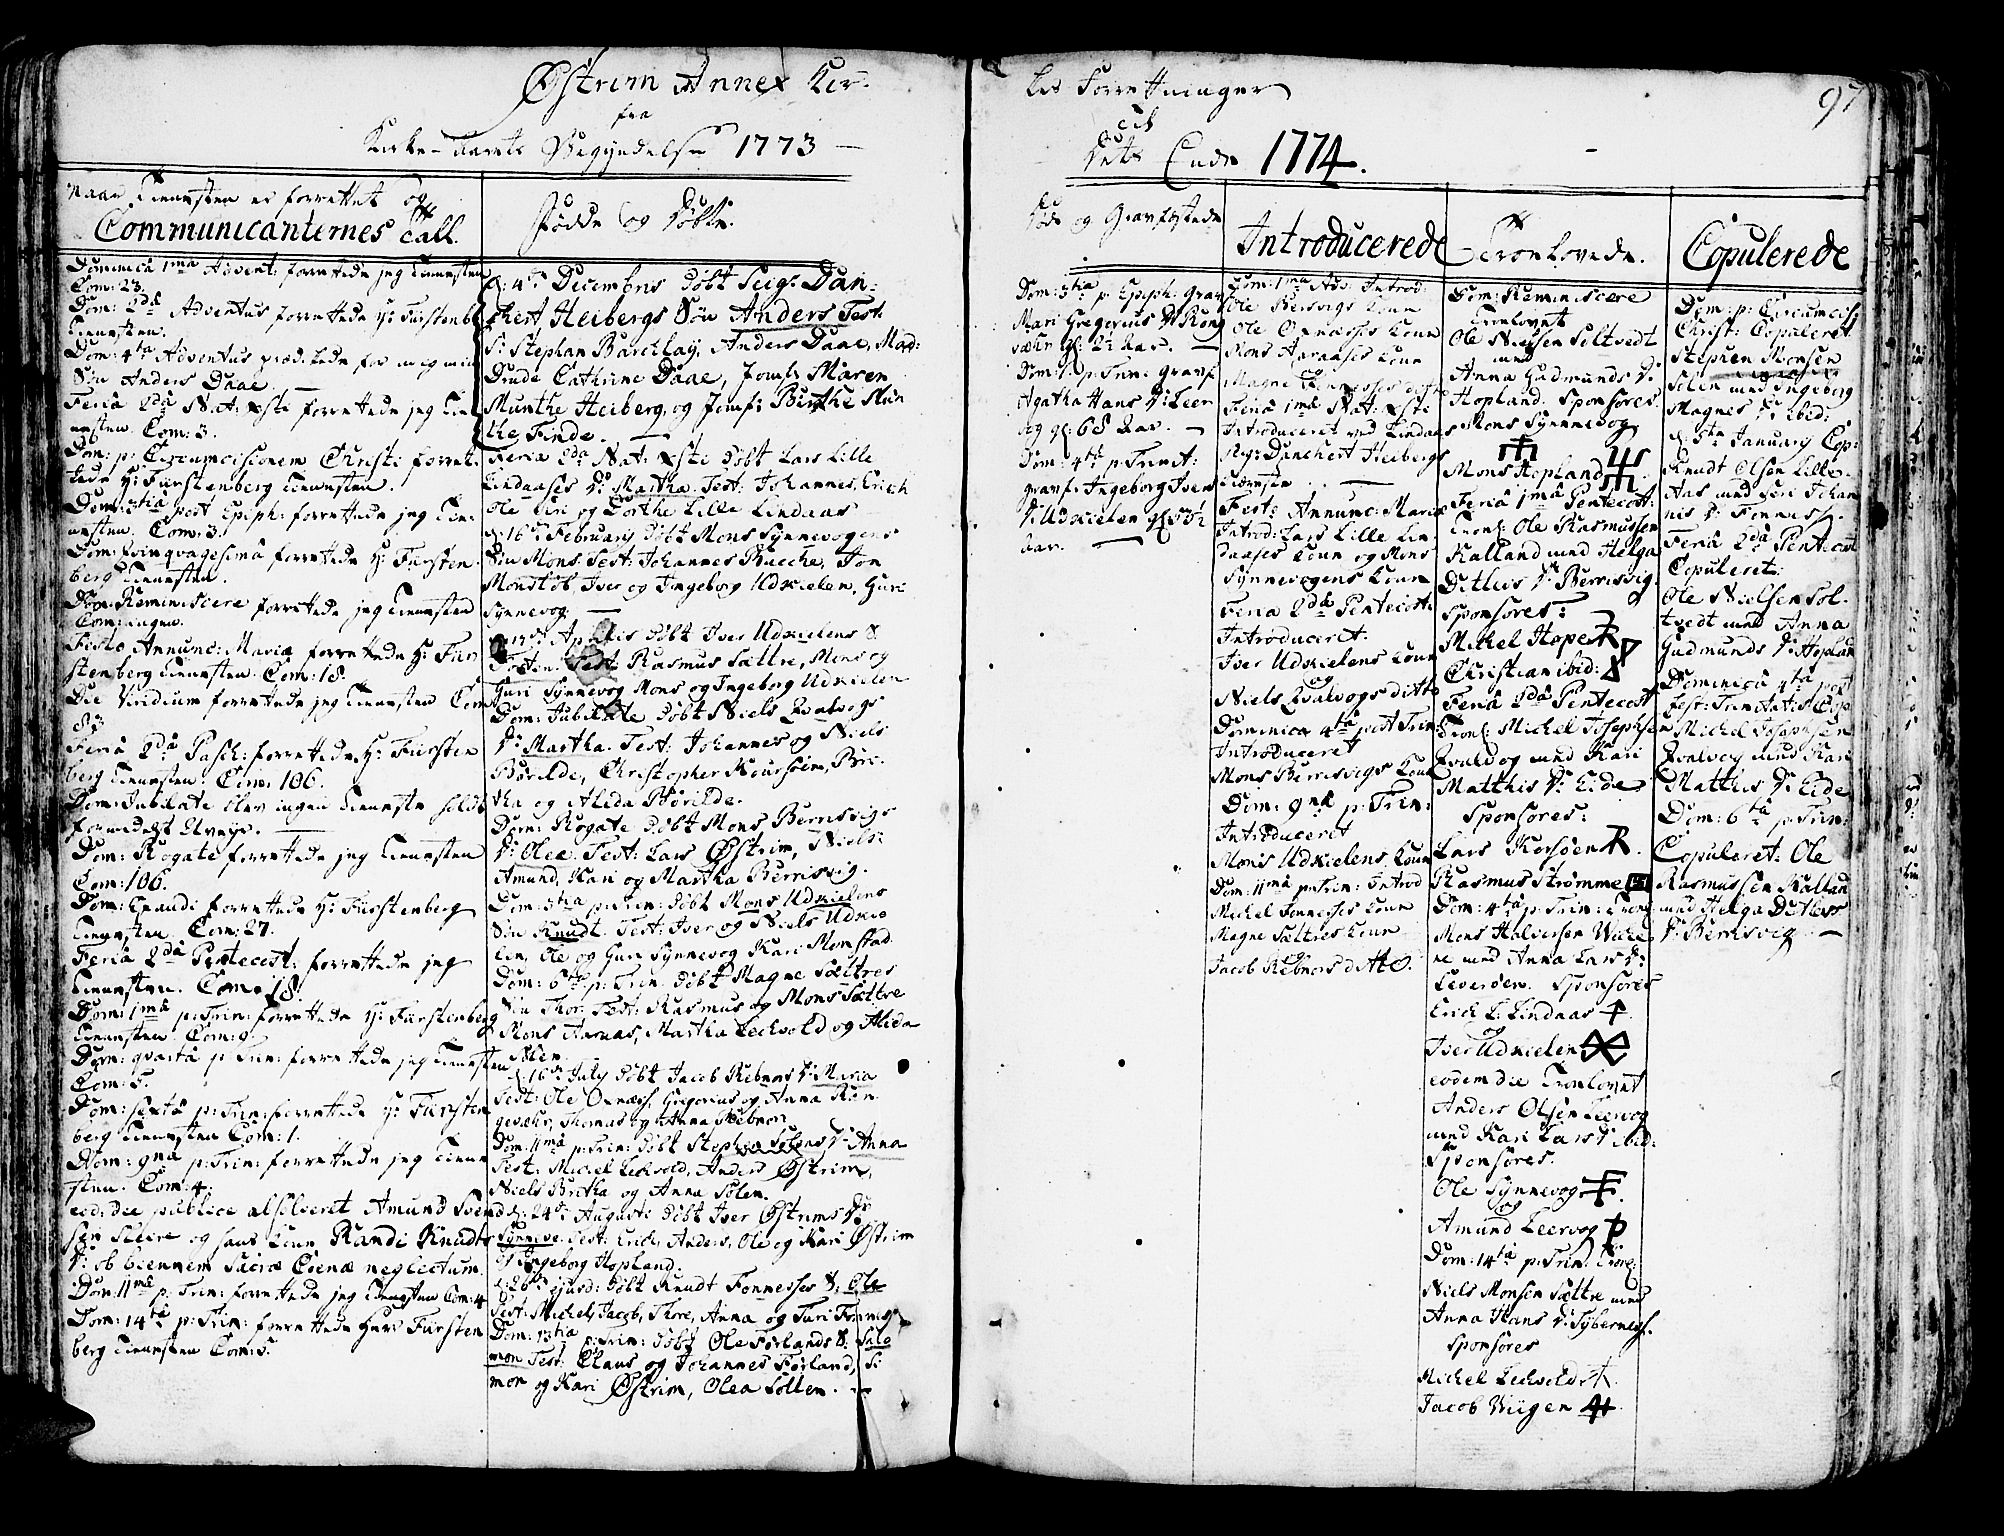 Østrem Annex Kir-
fra
Kirke-Aarets Begyndelse 1773
kes Forretninger
til
Dets Ende 1774.
97
Naar Tienesten er forrettet og
Communicanternes Tall.
Dominica 1ma Advent: forrettede jeg Tienesten
Com: 23.
Dom: 2da Adventus forrettede Hr: Fürstenb:
Tienesten.
Dom: 4ta Adventus præd.kede for mig min
Søn Anders Daae.
Feriâ 2dâ Nat: Xsti forrettede jeg Tie-
nesten. Com: 3.
Dom: p: Circumcisionem Christi forret-
tede Hr: Fürstenberg Tienesten.
Dom: 3tia post Epiph: forrettede jeg Tie-
nesten. Com: 3.
Dom: Qvinqvagesimâ forrettede Hr: Fürsten-
berg Tienesten.
Dom: Reminiscere forrettede jeg Tienesten
Com: ingen.
Festo Annunc: Mariæ forrettede Hr: Für-
stenberg Tienesten. Com: 18.
Die Viridium forrettede jeg Tienesten Com:
83.
Feriâ 2dâ Pasch: forrettede Hr: Fürsten
berg Tienesten. Com: 106.
Dom: Jubilate blev ingen Tieneste holdt
formedelst Uveyr.
Dom: Rogate forrettede jeg Tienesten
Com: 106.
Dom: Exaudi forrettede Hr: Fürstenberg
Tienesten. Com: 27.
Feriâ 2dâ Pentecost: forrettede jeg
Tienesten. Com: 18.
Dom: 1mâ p: Trin: forrettede Hr: Fürstenberg
Tienesten. Com: 9.
Dom: qvartâ p: Trin: forrettede jeg Tienesten
Com: 5.
Dom: sextâ p: Trin: forrettede Hr: Fürsten
berg Tienesten Com: 1.
Dom: 9nâ p: Trin: forrettede jeg Tiene
sten. Com: 4.
eod: die publice absolveret Amund Iver
sen og hans Kone Randi Knuds
Dr: ob biennem Sacræ Coenæ neglectum.
Dom: 11mâ p: Trin: forrettede jeg Tienesten Com: 4
Dom: 14tâ p: Trin: forrettede Herr Fürsten
berg Tienesten Com: 5.
Fødde og Døbte.
d: 4de Decembris Døbt Seigr Dan-
chert Heibergs Søn Anders Test:
Sr: Stephan Barchlay, Anders Daae, Mad:
Drude Cathrine Daae, Jomfr: Maren
Munthe Heiberg, og Jomfr: Birthe Mun
the Finde.
Feriæ 2da Nat: Xsti Døbt Lars Lille
Lindaases Dr: Martha. Test: Johannes, Erich
Ole Siri og Dorthe Lille Lindaas
d: 16de February Døbt Mons Synnevogens
Søn Mons. Test: Johannes Bache, Jon
Monsløb, Iver og Ingeborg Udkielen, Guri
Synnevog.
Aprilis Døbt Iver Udkielens S.
Test: Rasmus Sættre, Mons og
Guri Synnevog Mons og Ingeborg Udkielen
Dom: Jubilate Døbt Niels Qvalvogs
Dr: Martha. Test: Johannes og Niels
Børilde, Christopher Koursøen, Bri-
tha og Alida Børilde.
Dom: Rogate Døbt Mons Berrisvigs
Dr: Olee. Test: Lars Østrim, Niels:
Amund, Kari og Martha Berrisvig.
Dom: 3tia p: Trin: Døbt Mons Udkielens
Søn Knudt. Test: Iver og Niels Udkie
len, Ole og Guri Synnevog Kari Monstad.
Dom: 6ta p: Trin: Døbt Magne Sættres
Søn Thor. Test: Rasmus og Mons Sættre
Mons Aaraas, Martha Lechvold og Alida
Sølen.
d: 16de July Døbt Jacob Rebnors Dr: Maria
Test: Ole Oxnæss, Gregorius og Anna Kon
gevæhr, Thomas og Anna Rebnor.
Dom: 11mâ p: Trin: Døbt Stephen Sølens Dr: Anna
Test: Michel Lechvold, Anders Østrim,
Niels Britha og Anna Sølen.
d: 24de Augusti Døbt Iver Østrims Dr
Synneve. Test: Erich, Anders, Ole og Kari Østrim
og Ingeborg Hopland.
d: 26de ejusd: Døbt Knudt Fonnesses S: Ole
Test: Michel, Jacob, Thore, Anna og Turi Fonness
Dom: 13tia p: Trin: Døbt Ole Førlands S: Salo
mon Test: Claus og Johannes Førland, Si
mon og Kari Østrim, Olea Søllen.
Døde og Gravfæstede
Dom: 3tia p: Epiph: Grav
Mari Gregorius Dr Kong
væhr gl: 2½ Aar.
Dom: 1 p: Trin: Gravf:
Agatha Hans Dr: Leer
vog gl: 68 Aar.
Dom: 4ta p: Trinit:
gravf: Ingeborg Ivers
Dr: Udkielen gl: 5½
Aar.
Introducerede
Dom: 1ma Adv: Introd:
Ole Bersvigs Kone
Ole Oxnæsses Kone
Mons Aaraases Kone
og
Magne Fonnesses ditto
Feriâ 1mâ Nat: Xste
Introduceret ved Lindaas
Sigr: Danchert Heibergs
Kiæreste
Fest: Annunc: Mariæ
Introd: Lars Lille Lin
daases Kone og Mons
Synnevogens Kone
Feria 2dâ Pentecost:
Introduceret:
Iver Udkielens Kone
og
Niels Qvalvogs ditto
Dominica 4tâ post Trin:
Introduceret
Mons Berrisvigs Kone
Dom: 9nâ p: Trin:
Introduceret
Mons Udkielens Kone
Dom: 11mâ p: Trin: Introd
Michel Fonnesses Kone
Magne Sættres Kone
og
Jacob Rebnors ditto.
Troelovede.
Dom: Reminiscere
Troelovet
Ole Nielsen Soltvedt
med
Anna Gudmunds Dr
Hopland. Sponsores
Mons Synnevog
og
Mons Hopland
Feria 1mâ Pentecost:
Troel: Ole Rasmussen
Kalland med Helga
Ditlevs Dr Berrisvig.
Sponsores:
Michel Hope
Christian ibid:
Feriâ 2dâ Pentecost
Troel: Michel Josephsen
Qvalvog med Kari
Matthis Dr: Eide
Sponsores:
Lars Korsøen
Rasmus Strømme
Dom: 4tâ p: Trin: Troel:
Mons Halversen
med Anna Lars Dr:
Leversøen. Sponsores
Erich L: Lindaas
og
Iver Udkielen
eodem die Troelovet
Anders Olsen Leervog
med Kari Lars Dr ibid:
Sponsores.
Ole Synnevog
og
Amund Leervog
Dom: 14tâ p: Trin: Troel:
Niels Monsen Sættre med
Anna Hans Dr:
Sponsores
Michel Lechvold
Jacob Wiigen
Copulerede
Dom: p: Circumcis:
Christi Copuleret
Stephen Monsen
Sølen med Ingeborg
Magnes Dr ibid:
d: 5te January Cop:
Knudt Olsen Lille-
Aas med Siri Johan
nis Dr: Fonness.
Feriâ 2dâ Pentecost
Copuleret:
Ole Nielsen Sol-
tvedt med Anna
Gudmunds Dr: Hoplan
Dominicâ 4ta post
Fest: Trinitatis Cop:
Michel Josephsen
Qvalvog med Kari
Matthis Dr Eide
Dom: 6ta p: Trin:
Copuleret: Ole
Rasmussen Kalland
med Helga Ditlevs
Dr: Berrisvig